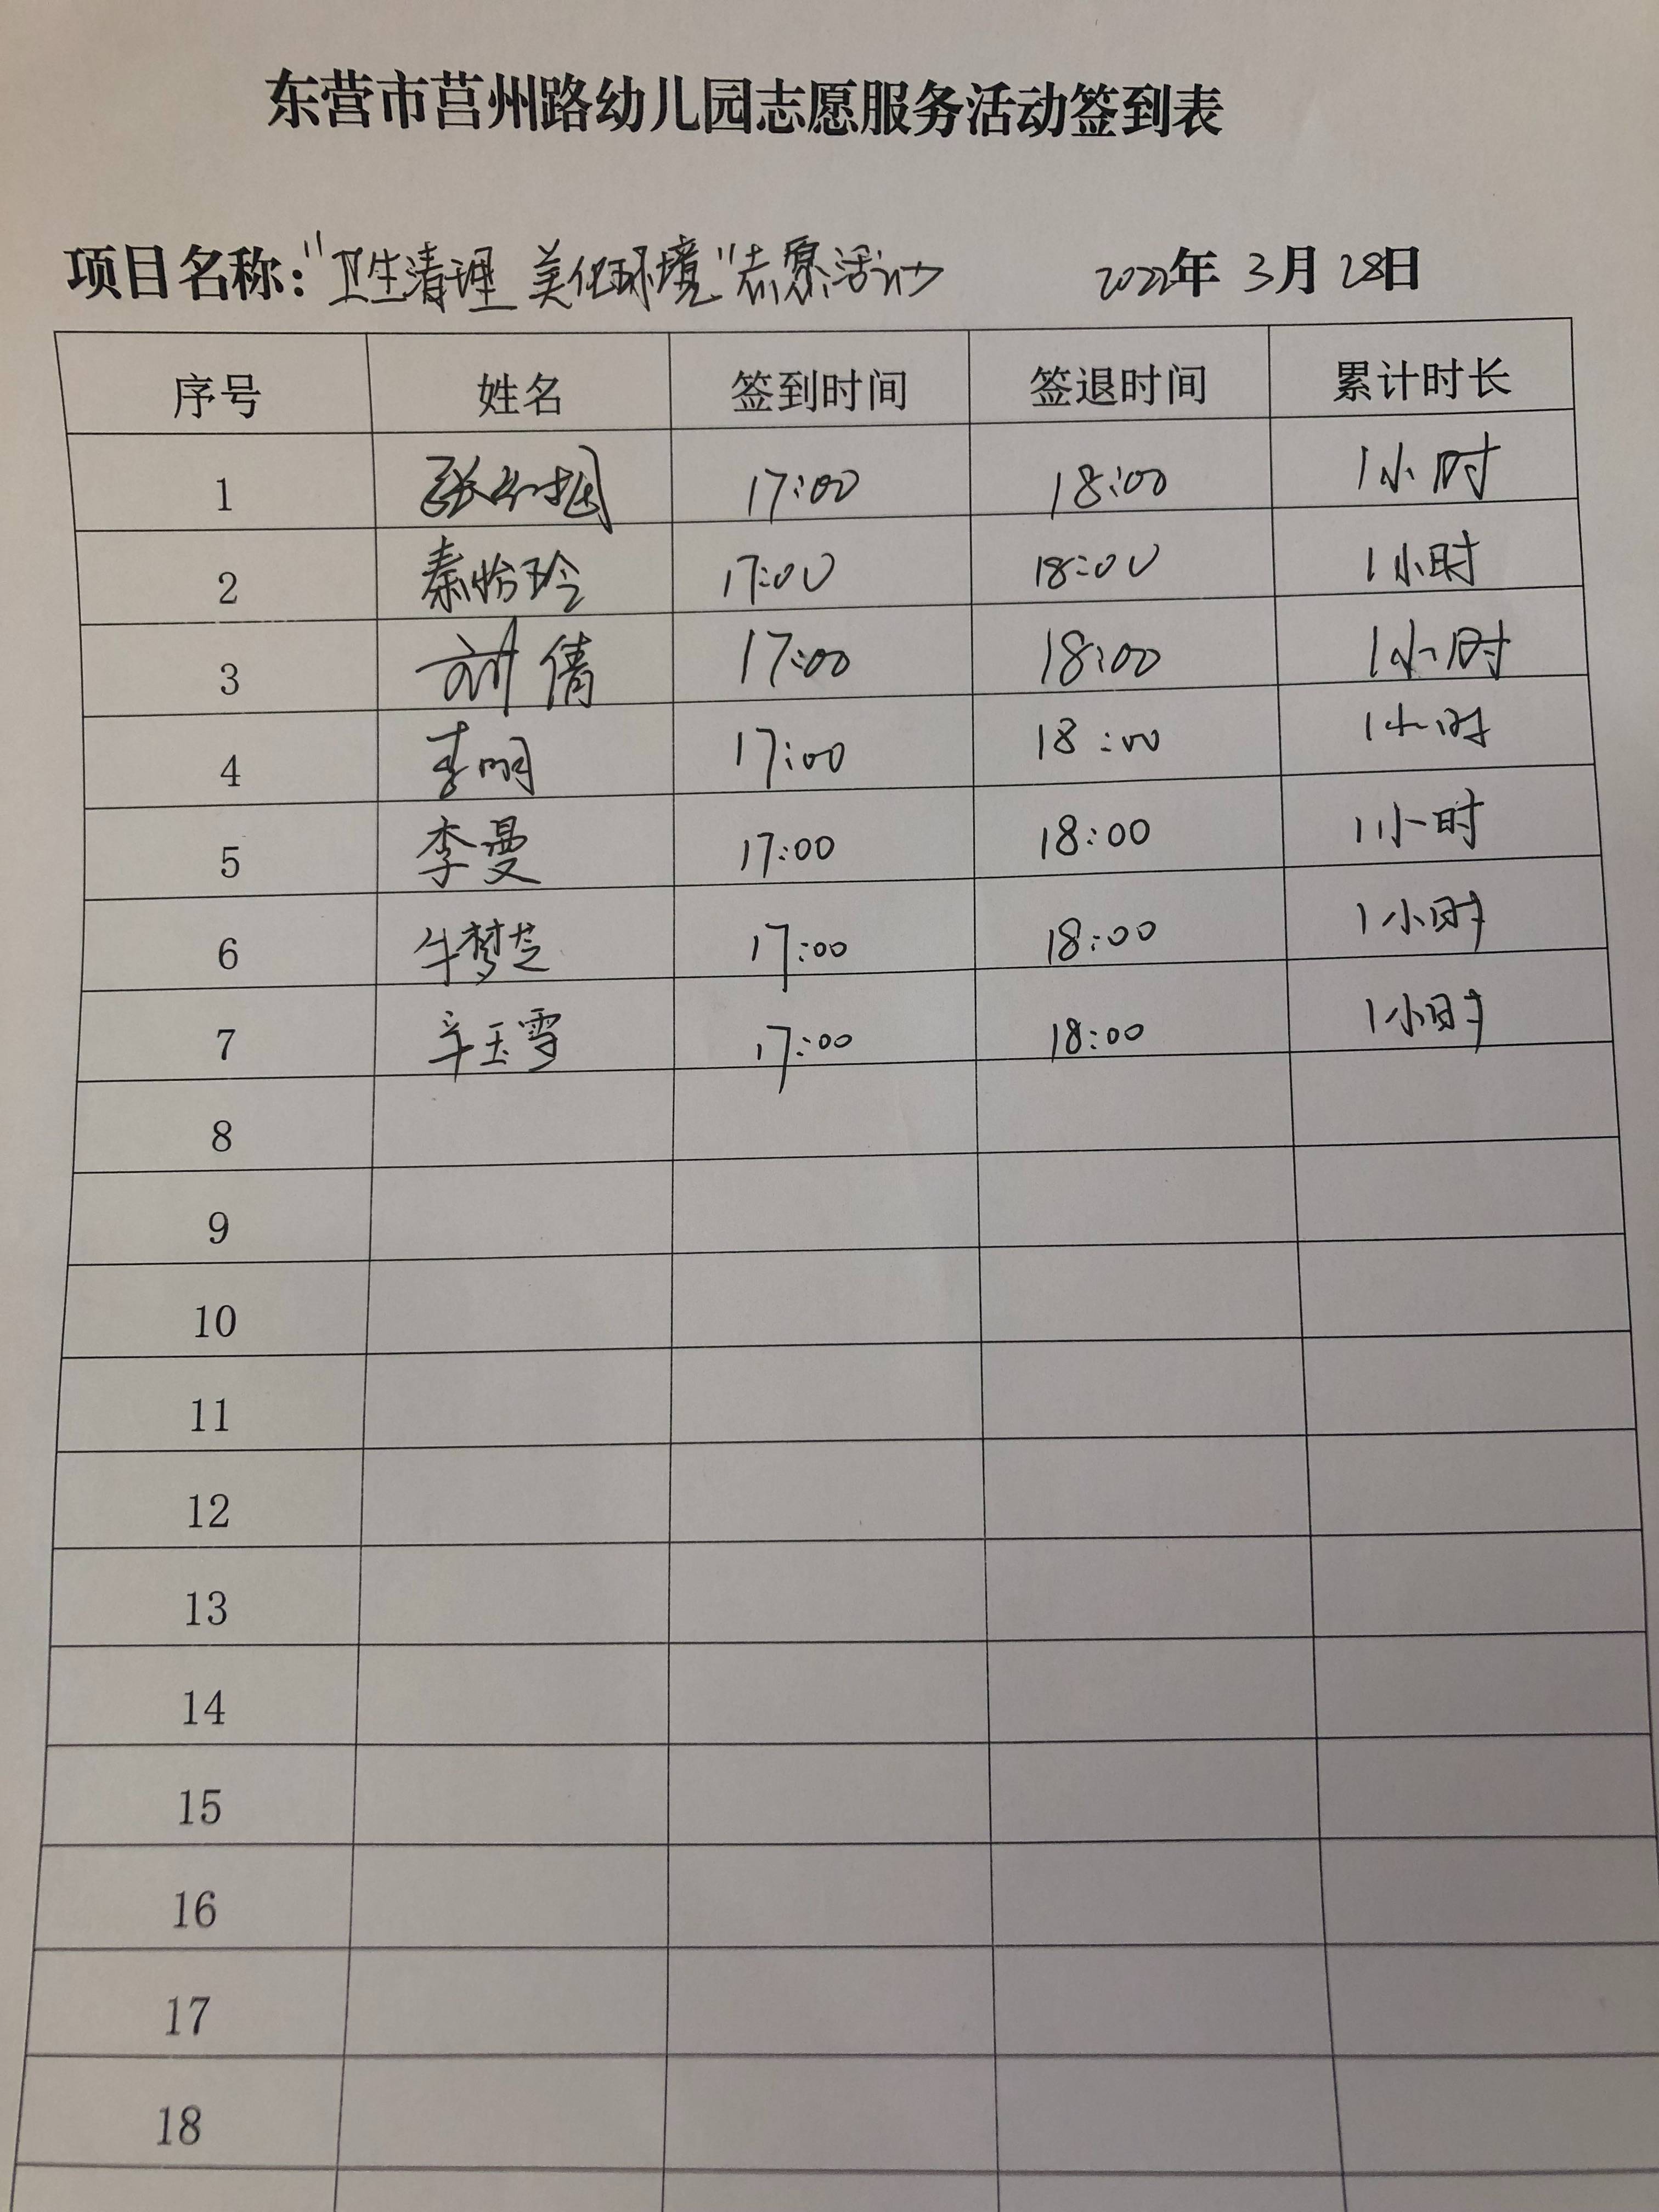 东营市莒州路幼儿园志愿服务活动签到表
项目名称：“卫生清理 美化环境”志愿活动 2022年 3月 28日
序号 姓名 签到时间 签退时间 累计时长
1 张 17:00 18:00 1小时
2 秦怡玲 17:00 18:00 1小时
3 刘倩 17:00 18:00 1小时
4 李明 17:00 18:00 1小时
5 李曼 17:00 18:00 1小时
6 牛梦芝 17:00 18:00 1小时
7 辛玉雪 17:00 18:00 1小时
8
9
10
11
12
13
14
15
16
17
18